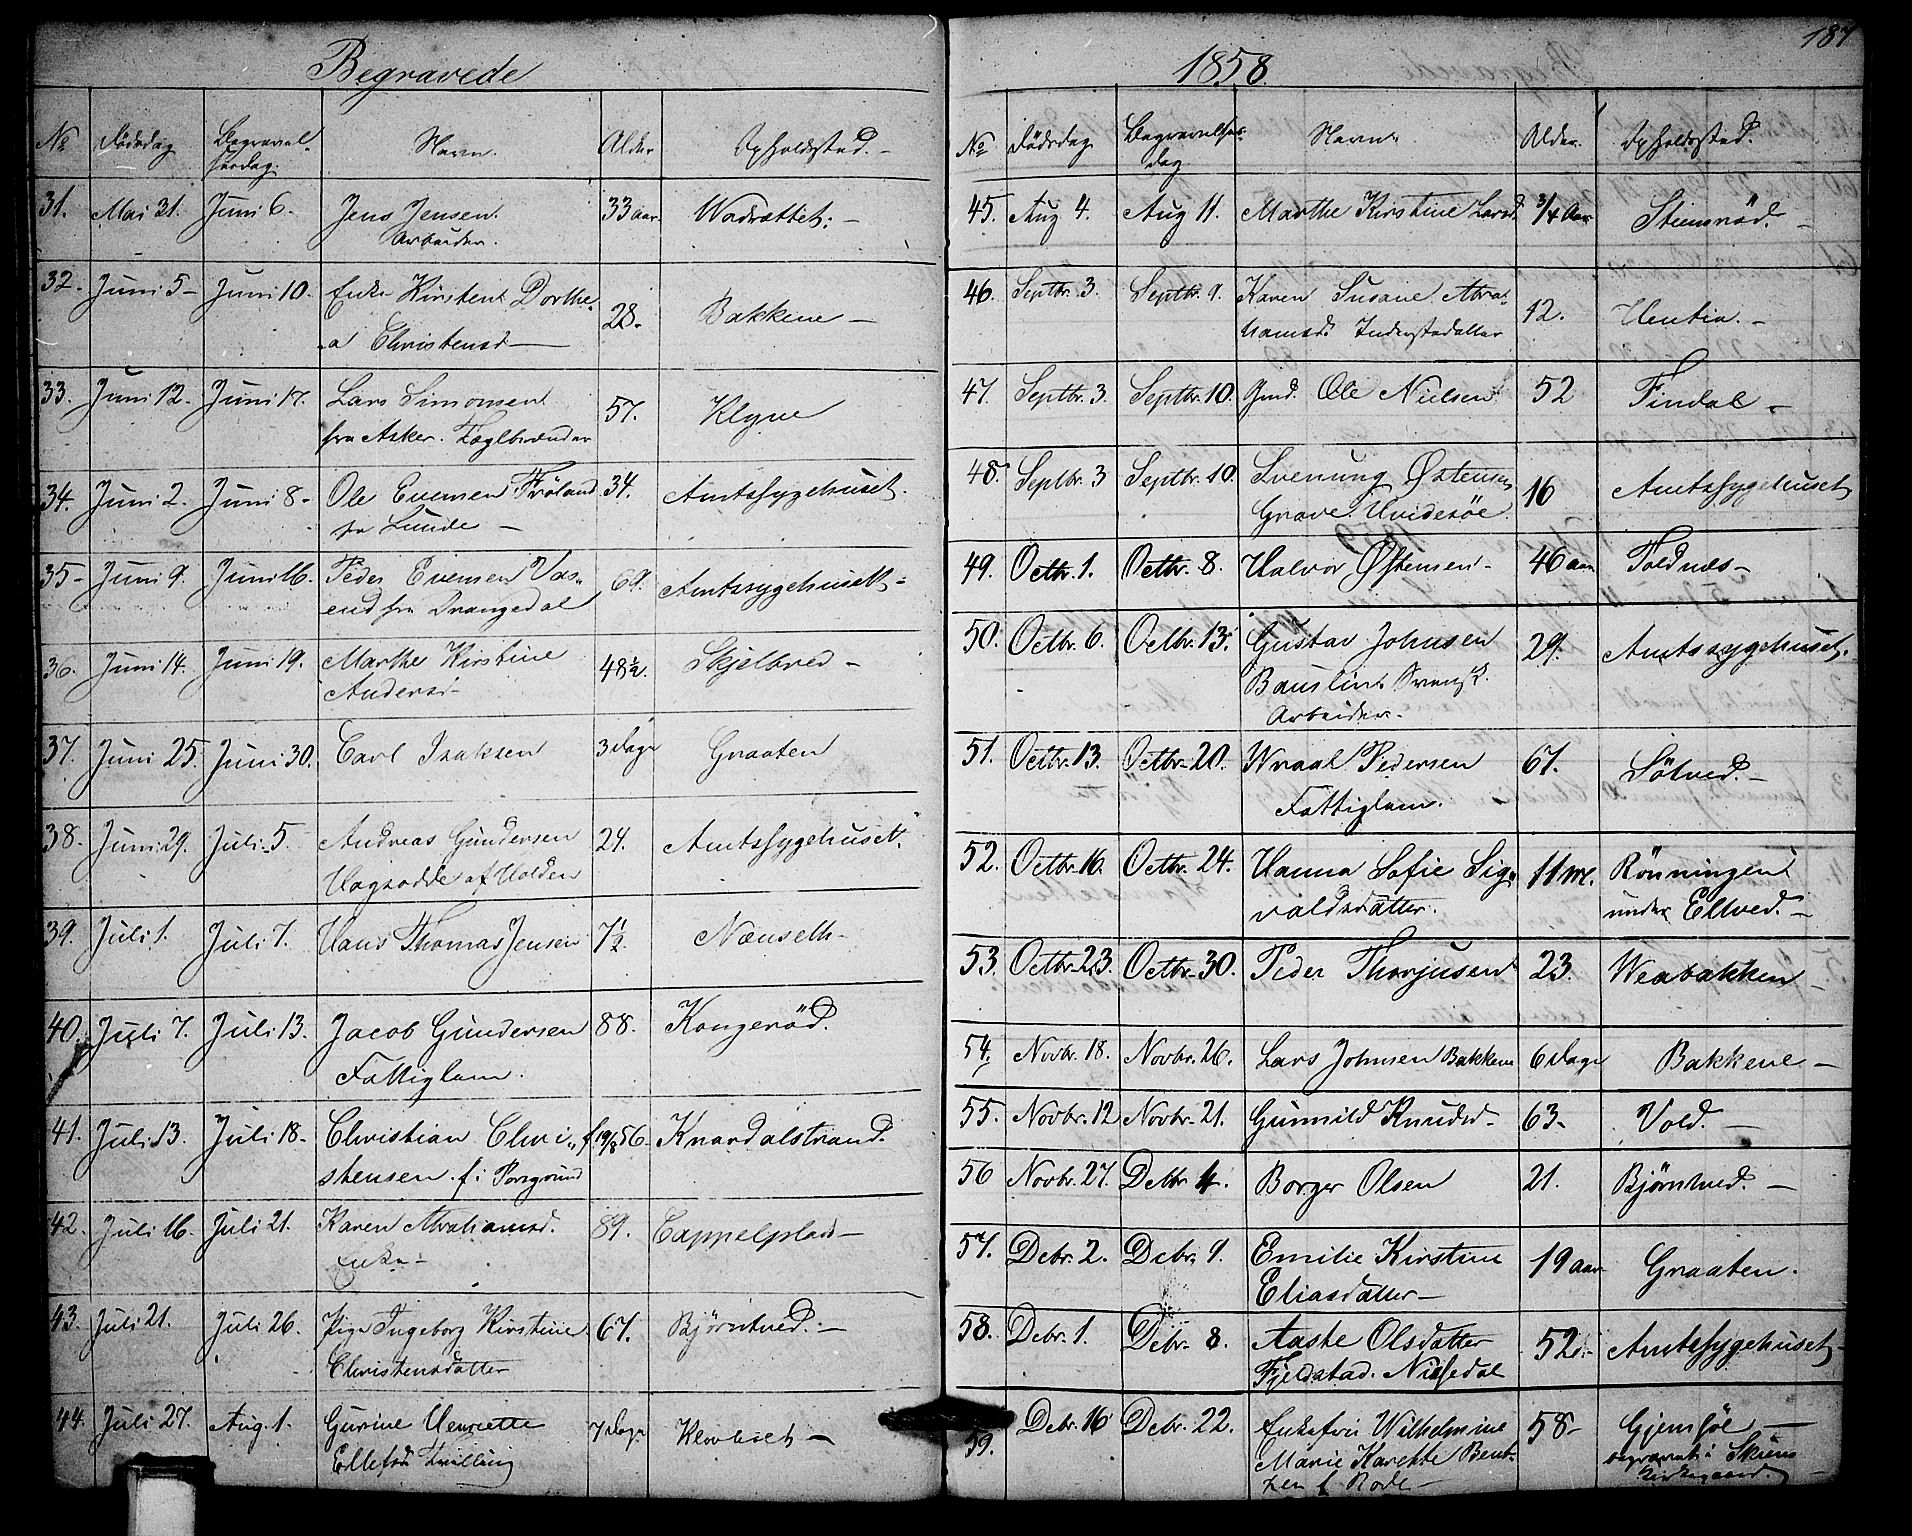 Begravede
№ Dødsdag Begravel-
sesdag. Navn. Alder Opholdssted. -
31. Mai 31. Juni 6. Jens Jensen. 33 aar. Wadrættet. -
Arbeider.
32. Juni 5 - Juni 10. Enke Kirstent Dorthe- 28. Bakkene -
a Christensd -
33. Juni 12. Juni 17. Lars Simonsen 57. Klyve
fra Asker. Tæglbrænder
34. Juni 2. Juni 8 - Ole Evensen Frøland 34. Amtssygehuset.
fra Lunde -
35 - Juni 9. Juni 16. Peder Evensen Vas- 69. Amtssygehusett -
end fra Drangedal
36. Juni 14. Juni 19. Marthe Kirstine 48½. Skjelbred -
Andersd -
37. Juni 25. Juni 30. Carl Isaksen 3 Dage Graaten
38. Juni 29. Juli 5. Andreas Gundersen 24. Amtssygehusett.
Hagsodde af Holden
39. Juli 1. Juli 7. Hans Thomas Jensen 7½. Nænseth -
40. Juli 7. Juli 13. Jacob Gundersen 88. Kongerød.
Fattiglem.
41. Juli 13. Juli 18. Christian Chri- f 19/8 56. Knardalstrand.
stensen. f. i Porsgrund
42. Juli 16. Juli 21. Karen Abrahamsd. 89. Cappelplads -
Enke -
43. Juli 21. Juli 26. Pige Ingeborg Kirstine 67. Bjørntved. -
Christensdatter
44. Juli 27. Aug. 1. Gurine Henriette 7 Dage Klovholt -
Ellefsd Tvilling
1858.
187
№ Dødsdag Begravelses-
dag Navn. Alder. Opholdssted.
45. Aug 4. Aug 11. Marthe Kirstine Larsd. ¾ Aar Steensrød. -
46. Septbr. 3. Septbr. 9. Karen Susane Abra- 12. Ventia. -
hamsd.
47. Septbr. 3. Septbr. 10. Gmd. Ole Nielsen 52 Findal -
48. Septbr. 3 Septbr. 10. Svenung Østensen 16 Amtssygehuset
Grave Hvidesøe.
49. Octbr. 1. Octbr. 8. Halvor Østensen - 46 aar Foldnes -
50. Octbr. 6. Octbr. 13. Gustav Johnsen 29. Amtssygehuset.
Bauslint Svensk.
Arbeider -
51. Octbr. 13. Octbr. 20. Wraal Pedersen 67. Sötved. -
Fattiglem.
52. Octbr. 16. Octbr. 24. Hanna Sofie Sig- 11 M. Rönningen
valdsdatter. under Eltved. -
53. Octbr. 23. Octbr. 30. Peder Thorjusen 23. Weabakken
54. Novbr. 18. Novbr. 26. Lars Johnsen Bakkene 6 Dage Bakkene -
55. Novbr. 12 Novbr. 21. Gunnild Knudsd - 63 - Vold. -
56 Novbr. 27. Debr. 4. Borger Olsen 21. Bjørntved. -
57. Debr. 2. Debr. 9. Emilie Kirstine 19 aar Graaten.
Eliasdatter -
58. Debr. 1. Debr. 8. Aaste Olsdatter 52. - Amtssygehuset -
Fjeldstad. Nissedal
59. Debr. 16 Debr. 22. Enkefru Wilhelmine 58 - Gjemsøe -
Marie Karethe Bent- begravet i Skiens
zen f. Rode - Kirkegaard.